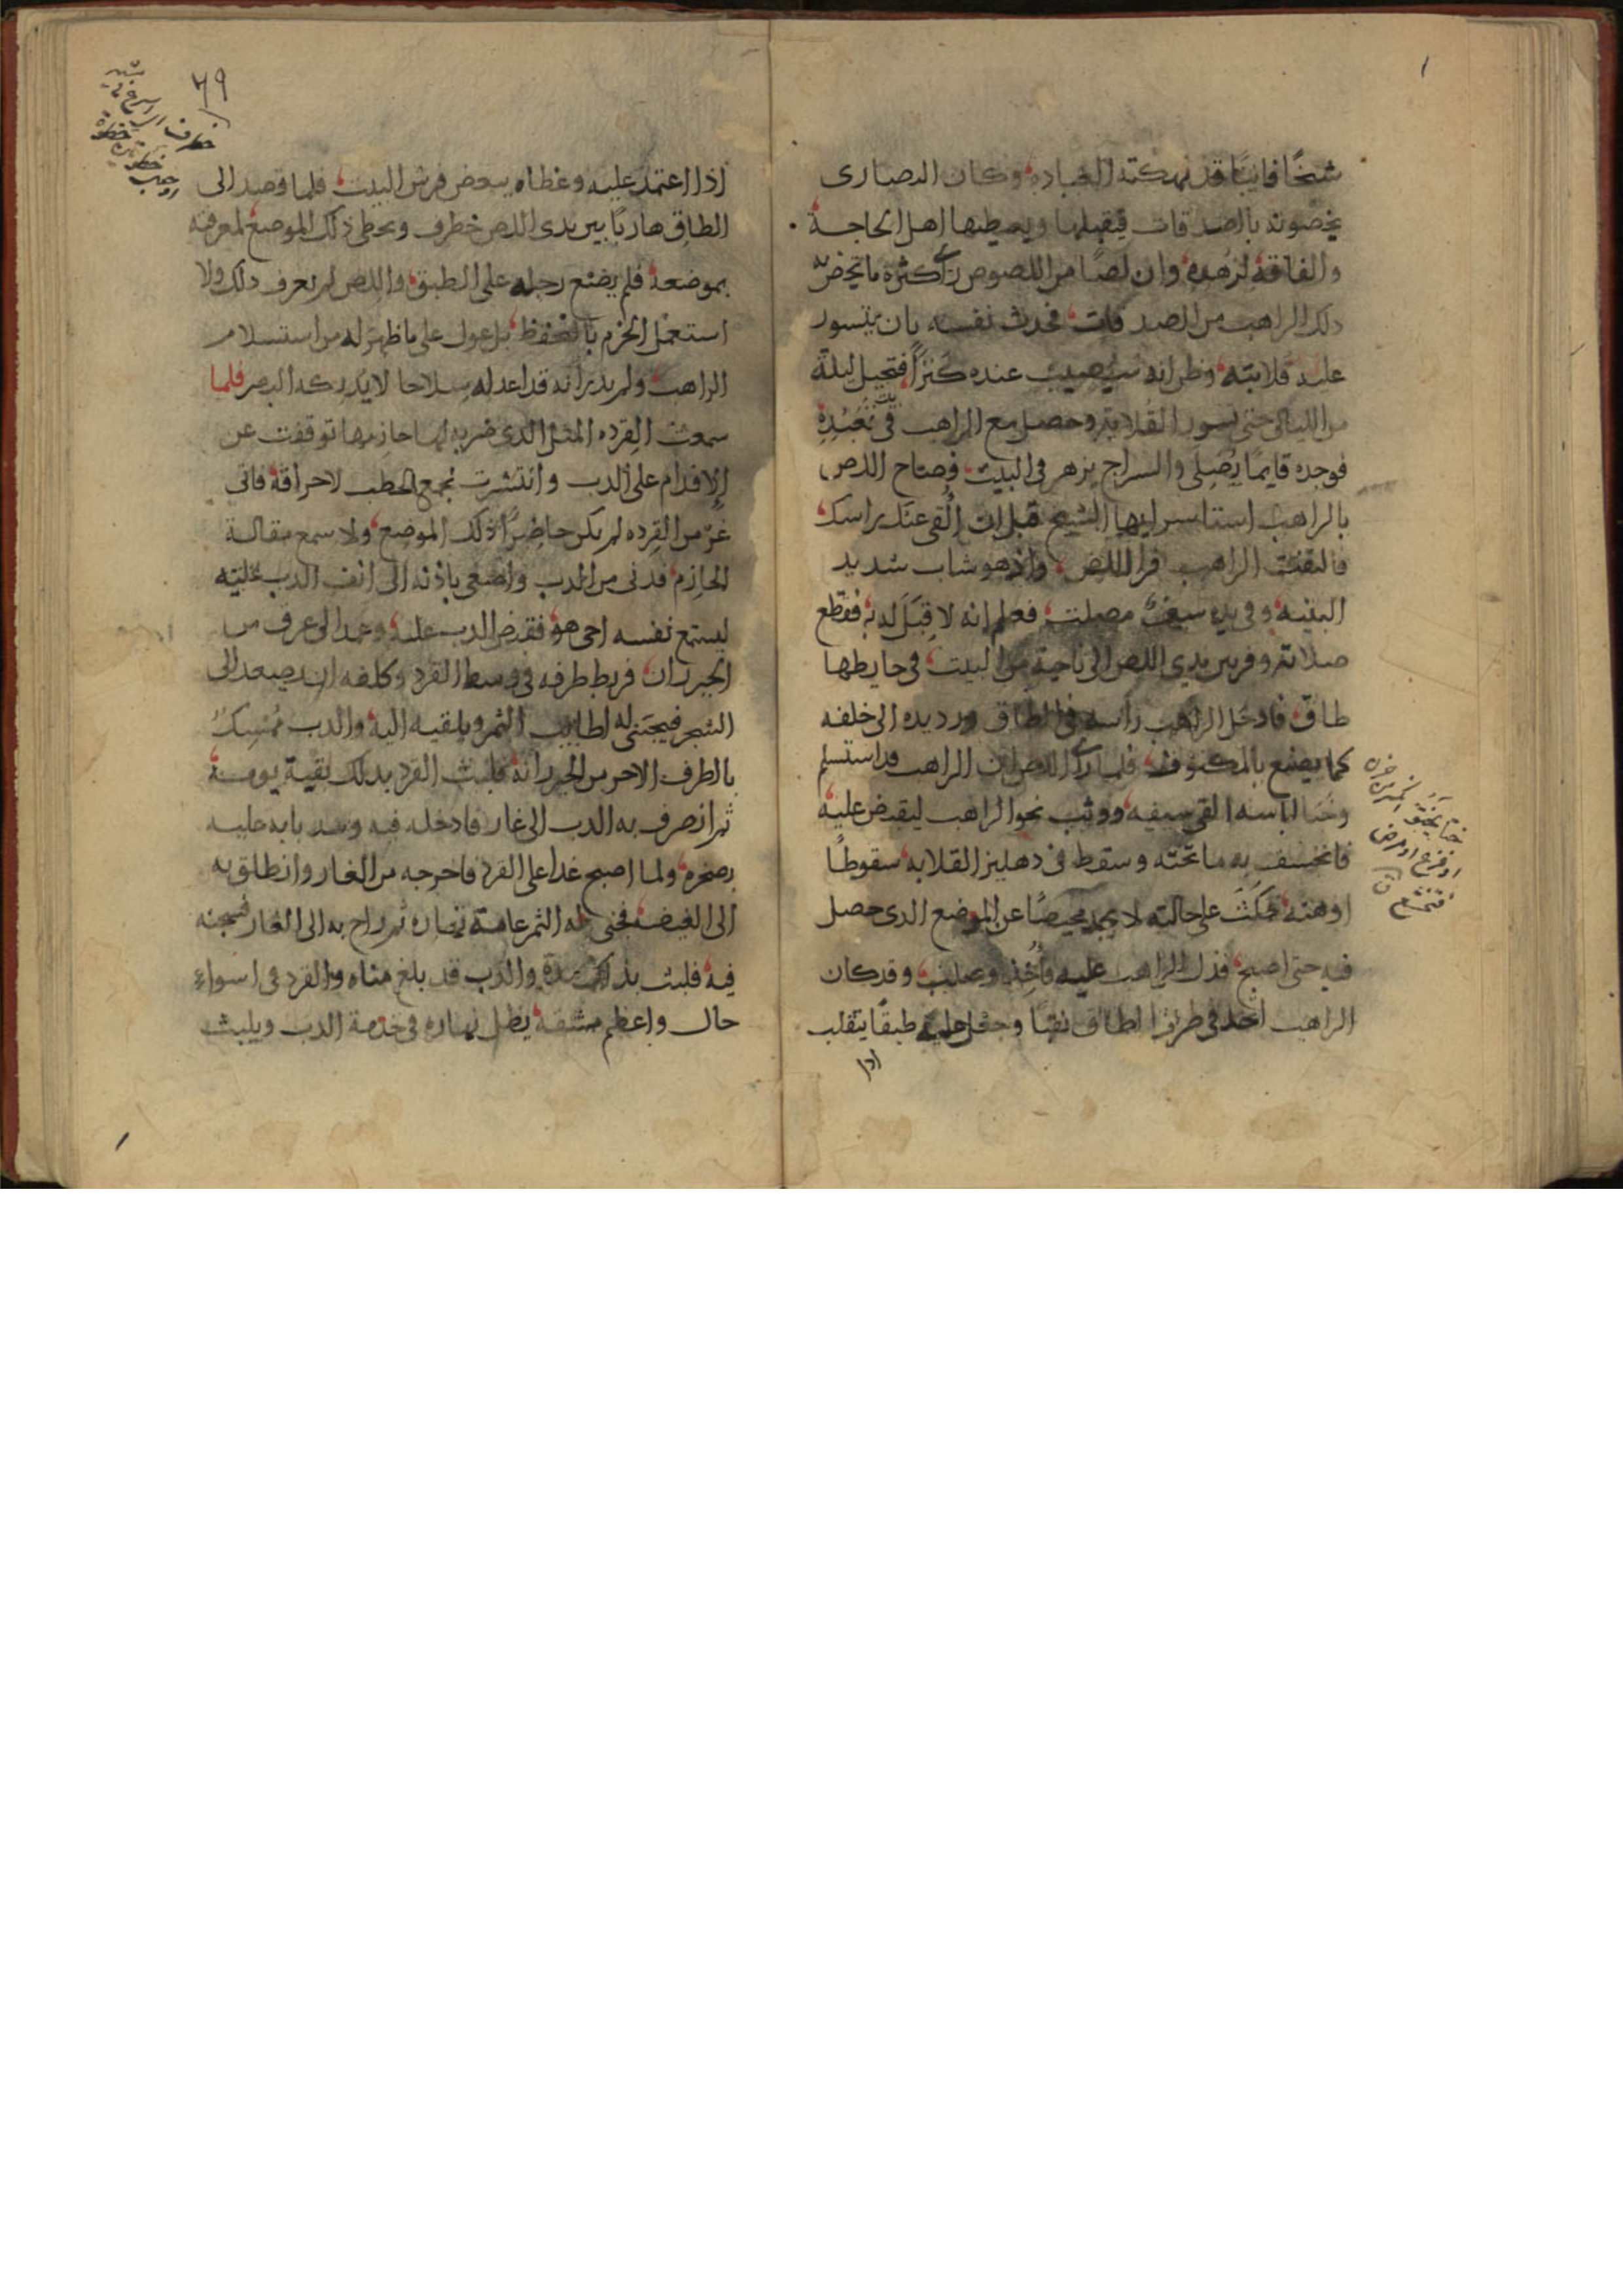 شيخًا فانيًا قد نهكته العباده وكان النصارى
يخصونه بالصدقات فيقبلها ويعطيها اهل الحاجة
والفاقة لزهده وان لصًا من اللصوص راى كثرة ما يخص به
ذلك الراهب من الصدقات فحدث نفسه بان يتسور
عليه قلايته وظن انه سيصيب عنده كنزًا فتحيل ليلة
من الليالى حتى تسور القلاية وحصل مع الراهب فى بيت تعبده
فوجده قايمًا يصلى والسراج يزهر فى البيت فصاح اللص
بالراهب استاسر ايها الشيخ قبل ان القى عنك راسك
فالتفت الراهب فرا اللص واذ هو شاب شديد
البنيه وفى يده سيف مصلت فعلم انه لا قبل له به فقطع
صلاته وفر بين يدى اللص الى ناحية من البيت فى حايطها
طاق فادخل الراهب راسه فى الطاق ورد يده الى خلفه
كما يصنع بالمكتوف فلما راى اللص ان الراهب قد استسلم
وختا لباسه القى سيفه ووثب نحو الراهب ليقبض عليه
فانخسف به ما تحته وسقط فى دهليز القلايه سقوطًا
اوهنه فمكث على حالته لا يجد محيصًا عن الموضع الذى حصل
فيه حتى اصبح فدل الراهب عليه فأخذ وصلب وقد كان
الراهب اتخذ فى طريق الطاق نقبًا وجعل عليه طبقًا يتقلب
اذا
ختا يختو
او فزع او مرض
فتخشع
٦٩
خطرف اسرع فى مشيه
اذا اعتمد عليه وغطاه ببعض فرش البيت فلما قصد الى
الطاق هاربًا بين يدى اللص خطرف وتخطى ذلك الموضع لمعرفته
بموضعه فلم يضع رجله على الطبق واللص لم يعرف ذلك ولا
استعمل الحزم بالتحفظ بل عول على ما ظهر له من استسلام
الراهب ولم يدر انه قد اعد له سلاحا لا يدركه البصر فلما
سمعت القرده المثل الذى ضربه لها حازمها توقفت عن
الاقدام على الدب وانتشرت تجمع الحطب لاحراقه فاتى
غر من القرده لم يكن حاضرًا ذلك الموضع ولا سمع مقالة
الحازم فدنى من الدب واصغى باذنه الى انف الدب عليه
ليستمع نفسه احى هو فقبض الدب عليه وعمد الى عرف من
الخيزران فربط طرفه فى وسط القرد وكلفه ان يصعد الى
الشجر فيجتنى له اطايب الثمر ويلقيه اليه والدب ممسك
بالطرف الاخر من الخيزرانه فلبث القرد بذلك بقية يومه
ثم انصرف به الدب الى غار فادخله فيه وسد بابه عليه
بصخره ولما اصبح غدا على القرد فاخرجه من الغار وانطلق به
الى الغيضه فجنى له الثمر عامة نهاره ثم راح به الى الغار فسجنه
فيه فلبث بذلك مدة والدب قد بلغ مناه والقرد فى اسواء
حال واعظم مشقه يظل نهاره فى خدمة الدب ويلبث